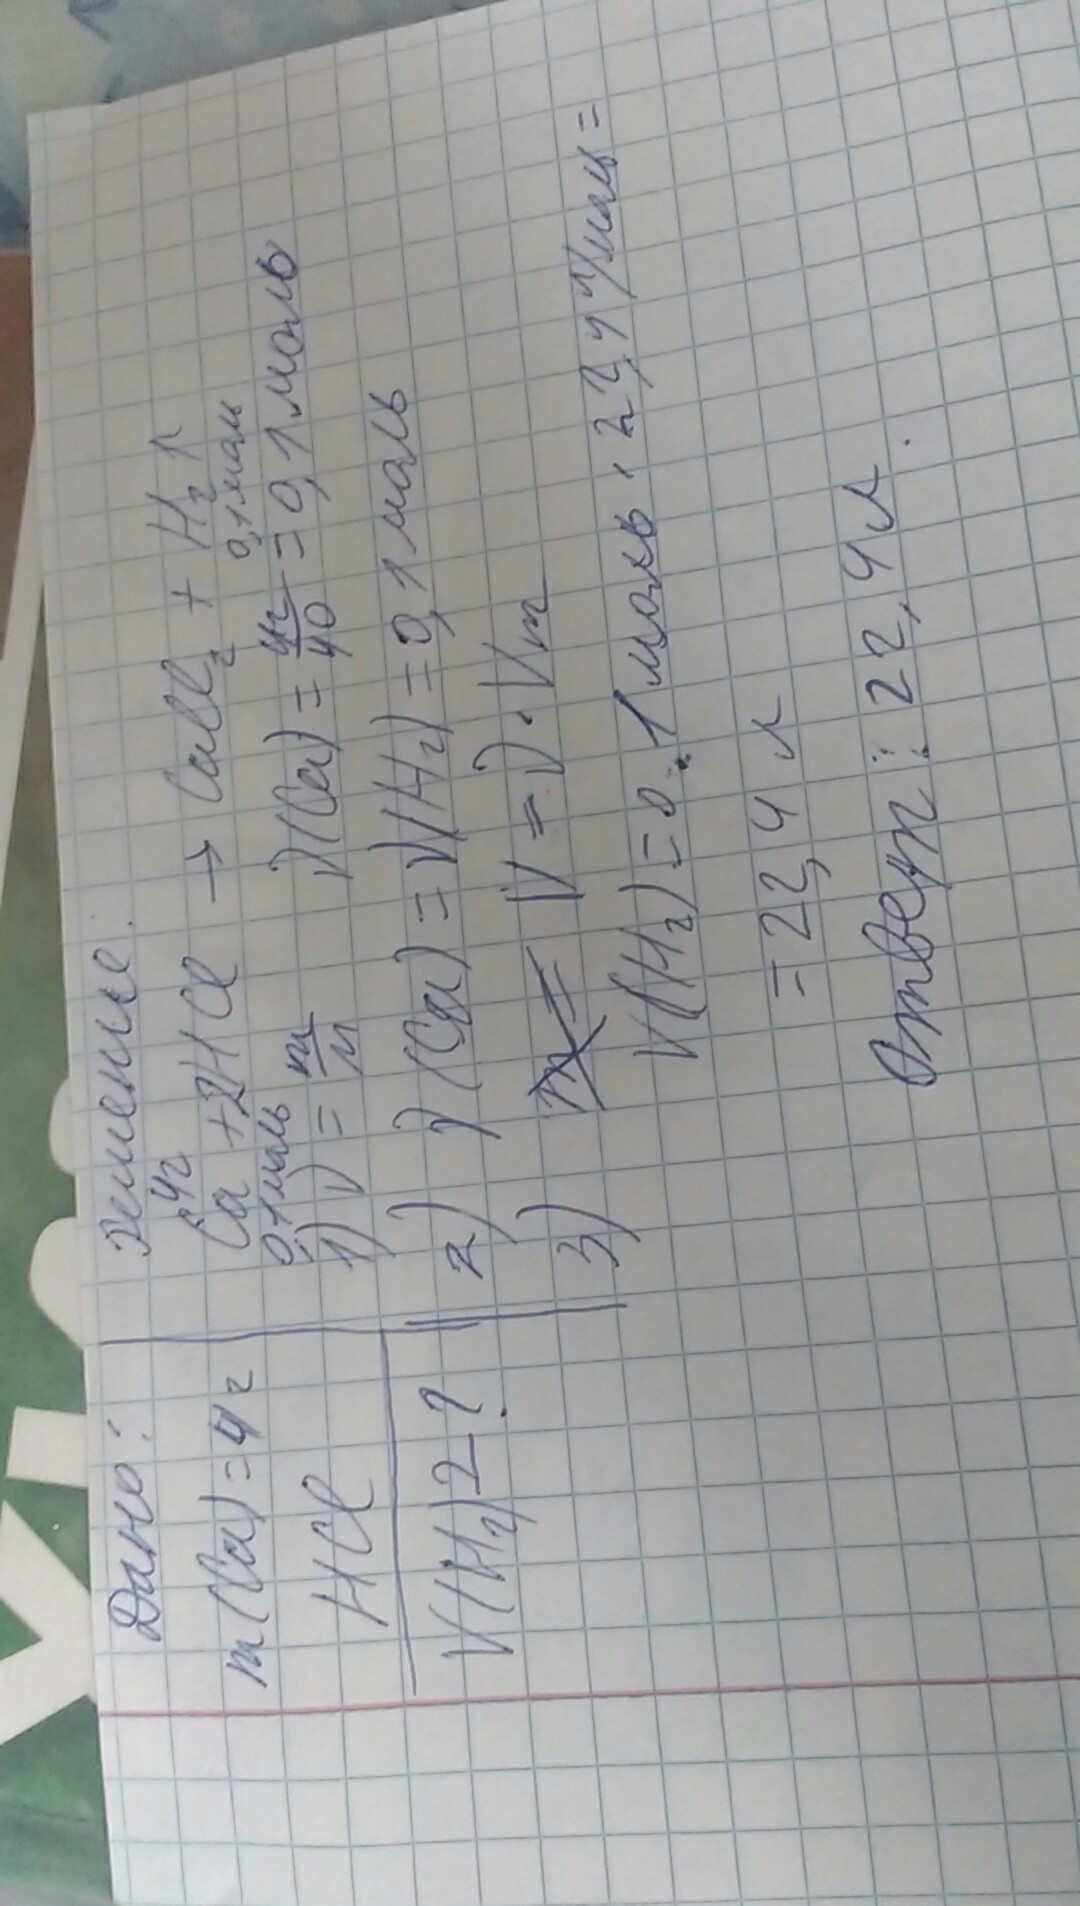 Дано:
m(Ca)=4г
HCl
V(H₂)-?
Решение.
4г
Ca + 2HCl → CaCl₂ + H₂↑
0,1моль 0,1моль
1) ν = m/M ν(Ca) = 4г/40 = 0,1 моль
2) ν(Ca) = ν(H₂) = 0,1 моль
3) V = ν · Vm
V(H₂) = 0,1 моль · 22,4 л/моль =
= 22,4 л
Ответ: 22,4л.